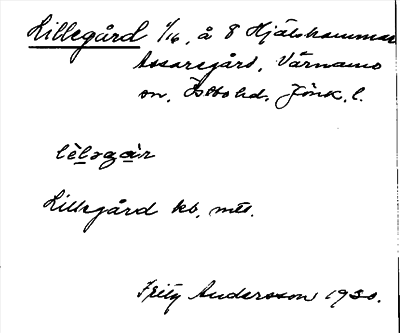 Lillegård 1/16, å 8 Hjälshammar
Assaregård, Värnamo
sn, Östbo hd, Jönk. l.
Lillegård kb, mtl.
Fritz Andersson 1930.